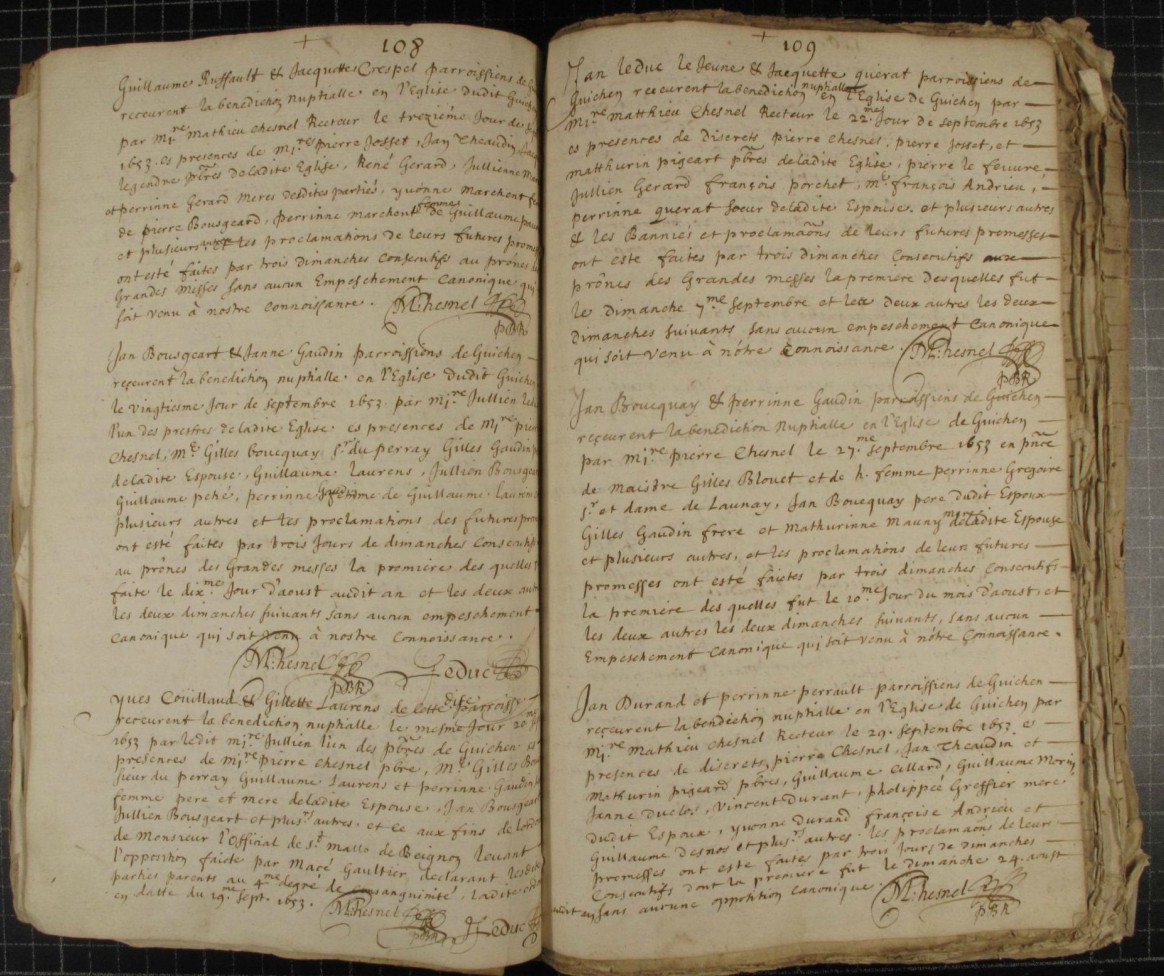 108
Guillaume Ruffault & Jacquette Crespel parroissiens de
receurent la benediction nuptialle en l'Eglise dudit Guichen
par Mi.re Mathieu Chesnel Recteur le trezième Jour de
1653. es presences de Mi.re pierre Josset, Jan Theaudin,
legendre pbres deladite Eglise, René Gerard, Jullienne
et perrinne Gerard meres desdites parties, yvonne Marchent
de pierre Bousgeard, perrinne marchent femmes de Guillaume
et plusieurs les proclamations de leurs futures
ont esté faites par trois dimanches Consecutifs au prones
Grandes Messes sans aucun Empeschement Canonique qui
soit venu à nostre connoissance. M: hesnel
pBR
Jan Bousgeart & Janne Gaudin parroissiens de Guichen
reçeurent la benediction nuphalle. en l'Eglise dudit Guichen
le vingtiesme Jour de septembre 1653. par Mi.re Jullien
l'un des prestres deladite Eglise. es presences de Mi.re
Chesnel, M.e Gilles boucquay s.r du perray Gilles Gaudin
deladite Espouse, Guillaume laurens, Jullien Bousgeart
Guillaume peché, perrinne femme de Guillaume. laurens
plusieurs autres et les proclamations des futures
ont esté faites par trois Jours de dimanches Consecutifs
au prones des Grandes messes la premiere des quelles
faite le dix.me Jour d'aoust audit an et les deux
les deux dimanches suivants sans aucun empeschement
canonique qui soit venu à nostre Connoissance.
M: hesnel Leduc
pBR
Yves Coüillaud & Gillette Laurens de cette dite parroisse
receurent la benediction nuphalle le mesme Jour 20
1653 par ledit Mi.re Jullien l'un des pbres de Guichen es
presences de Mi.re pierre chesnel pbre, M.e Gilles
sieur du perray Guillaume Laurens et perrinne Gaudin
femme pere et mere deladite Espouse, Jan Bousgeart
Jullien Bousgeart et plus.rs autres. et ce aux fins de
de Monsieur l'official de s.t malo de Beignon levant
l'opposition faicte par Macé Gaultier, declarant
parties parents au 4.me degre de Consanguinité, ladite
en datte du 19.me sept. 1653. M: hesnel
pBR Leduc
109
Jan leduc le Jeune & Jacquette querat parroissiens de
Guichen receurent la benediction nuphalle en l'Eglise de Guichen par
Mi.re Matthieu Chesnel Recteur le 22.me Jour de septembre 1653
es presences de Discrets pierre Chesnel, pierre Josset, et
matthurin pigeart pbres deladite Eglise, pierre le feuvre,
Jullien Gerard françois porchet, m.e françois Andrieu,
perrinne querat soeur deladite Espouse. et plusieurs autres
& les Banniés et proclamaõns de leurs futures promesses
ont esté faites par trois dimanches Consecutifs aux
prônes des Grandes messes la premiere Desquelles fut
le dimanche 7.me septembre et les Deux autres les deux
Dimanches suivants sans aucun empeschement Canonique
qui soit venu à nôtre Connoissance. M: hesnel
pBR
Jan Boucquay & perrinne Gaudin paroissiens de Guichen
reçeurent la benediction Nuphalle en l'Eglise de Guichen
par Mi.re pierre Chesnel le 27.me septembre 1653 en pnce
de Maistre Gilles Blouet et de h. femme perrinne Gregoire
s.r et dame de Launay, Jan Boucquay pere dudit Espoux
Gilles Gaudin frere et Mathurinne Mauny mere deladite Espouse
et plusieurs autres, et les proclamations de leurs futures
promesses ont esté faictes par trois dimanches Consecutifs
la premiere des quelles fut le 10.me Jour du mois d'aoust, et
les deux autres les deux dimanches suivants, sans aucun
Empeschement Canonique qui soit venu à nôtre Connoissance.
Jan Durand et perrinne perrault parroissiens de Guichen
reçeurent la benediction nuphalle en l'Eglise de Guichen par
Mi.re Mathieu Chesnel Recteur le 29. septembre 1653. es
presences de discrets pierre Chesnel, Jan Theaudin et
Mathurin pigeard pbres, Guillaume Cillard, Guillaume Morin,
Janne duclos, Vincent Durant, pholippée Greffier mere
dudit Espoux, yvonne Durand françoise Andrieu et
Guillaume Desnos et plus.rs autres. les proclamaõns de leurs
promesses ont esté faites par trois Jours de dimanches
Consecutifs dont la premiere fut le dimanche 24. aoust
audit an sans aucune opposition Canonique. M: hesnel
pBR